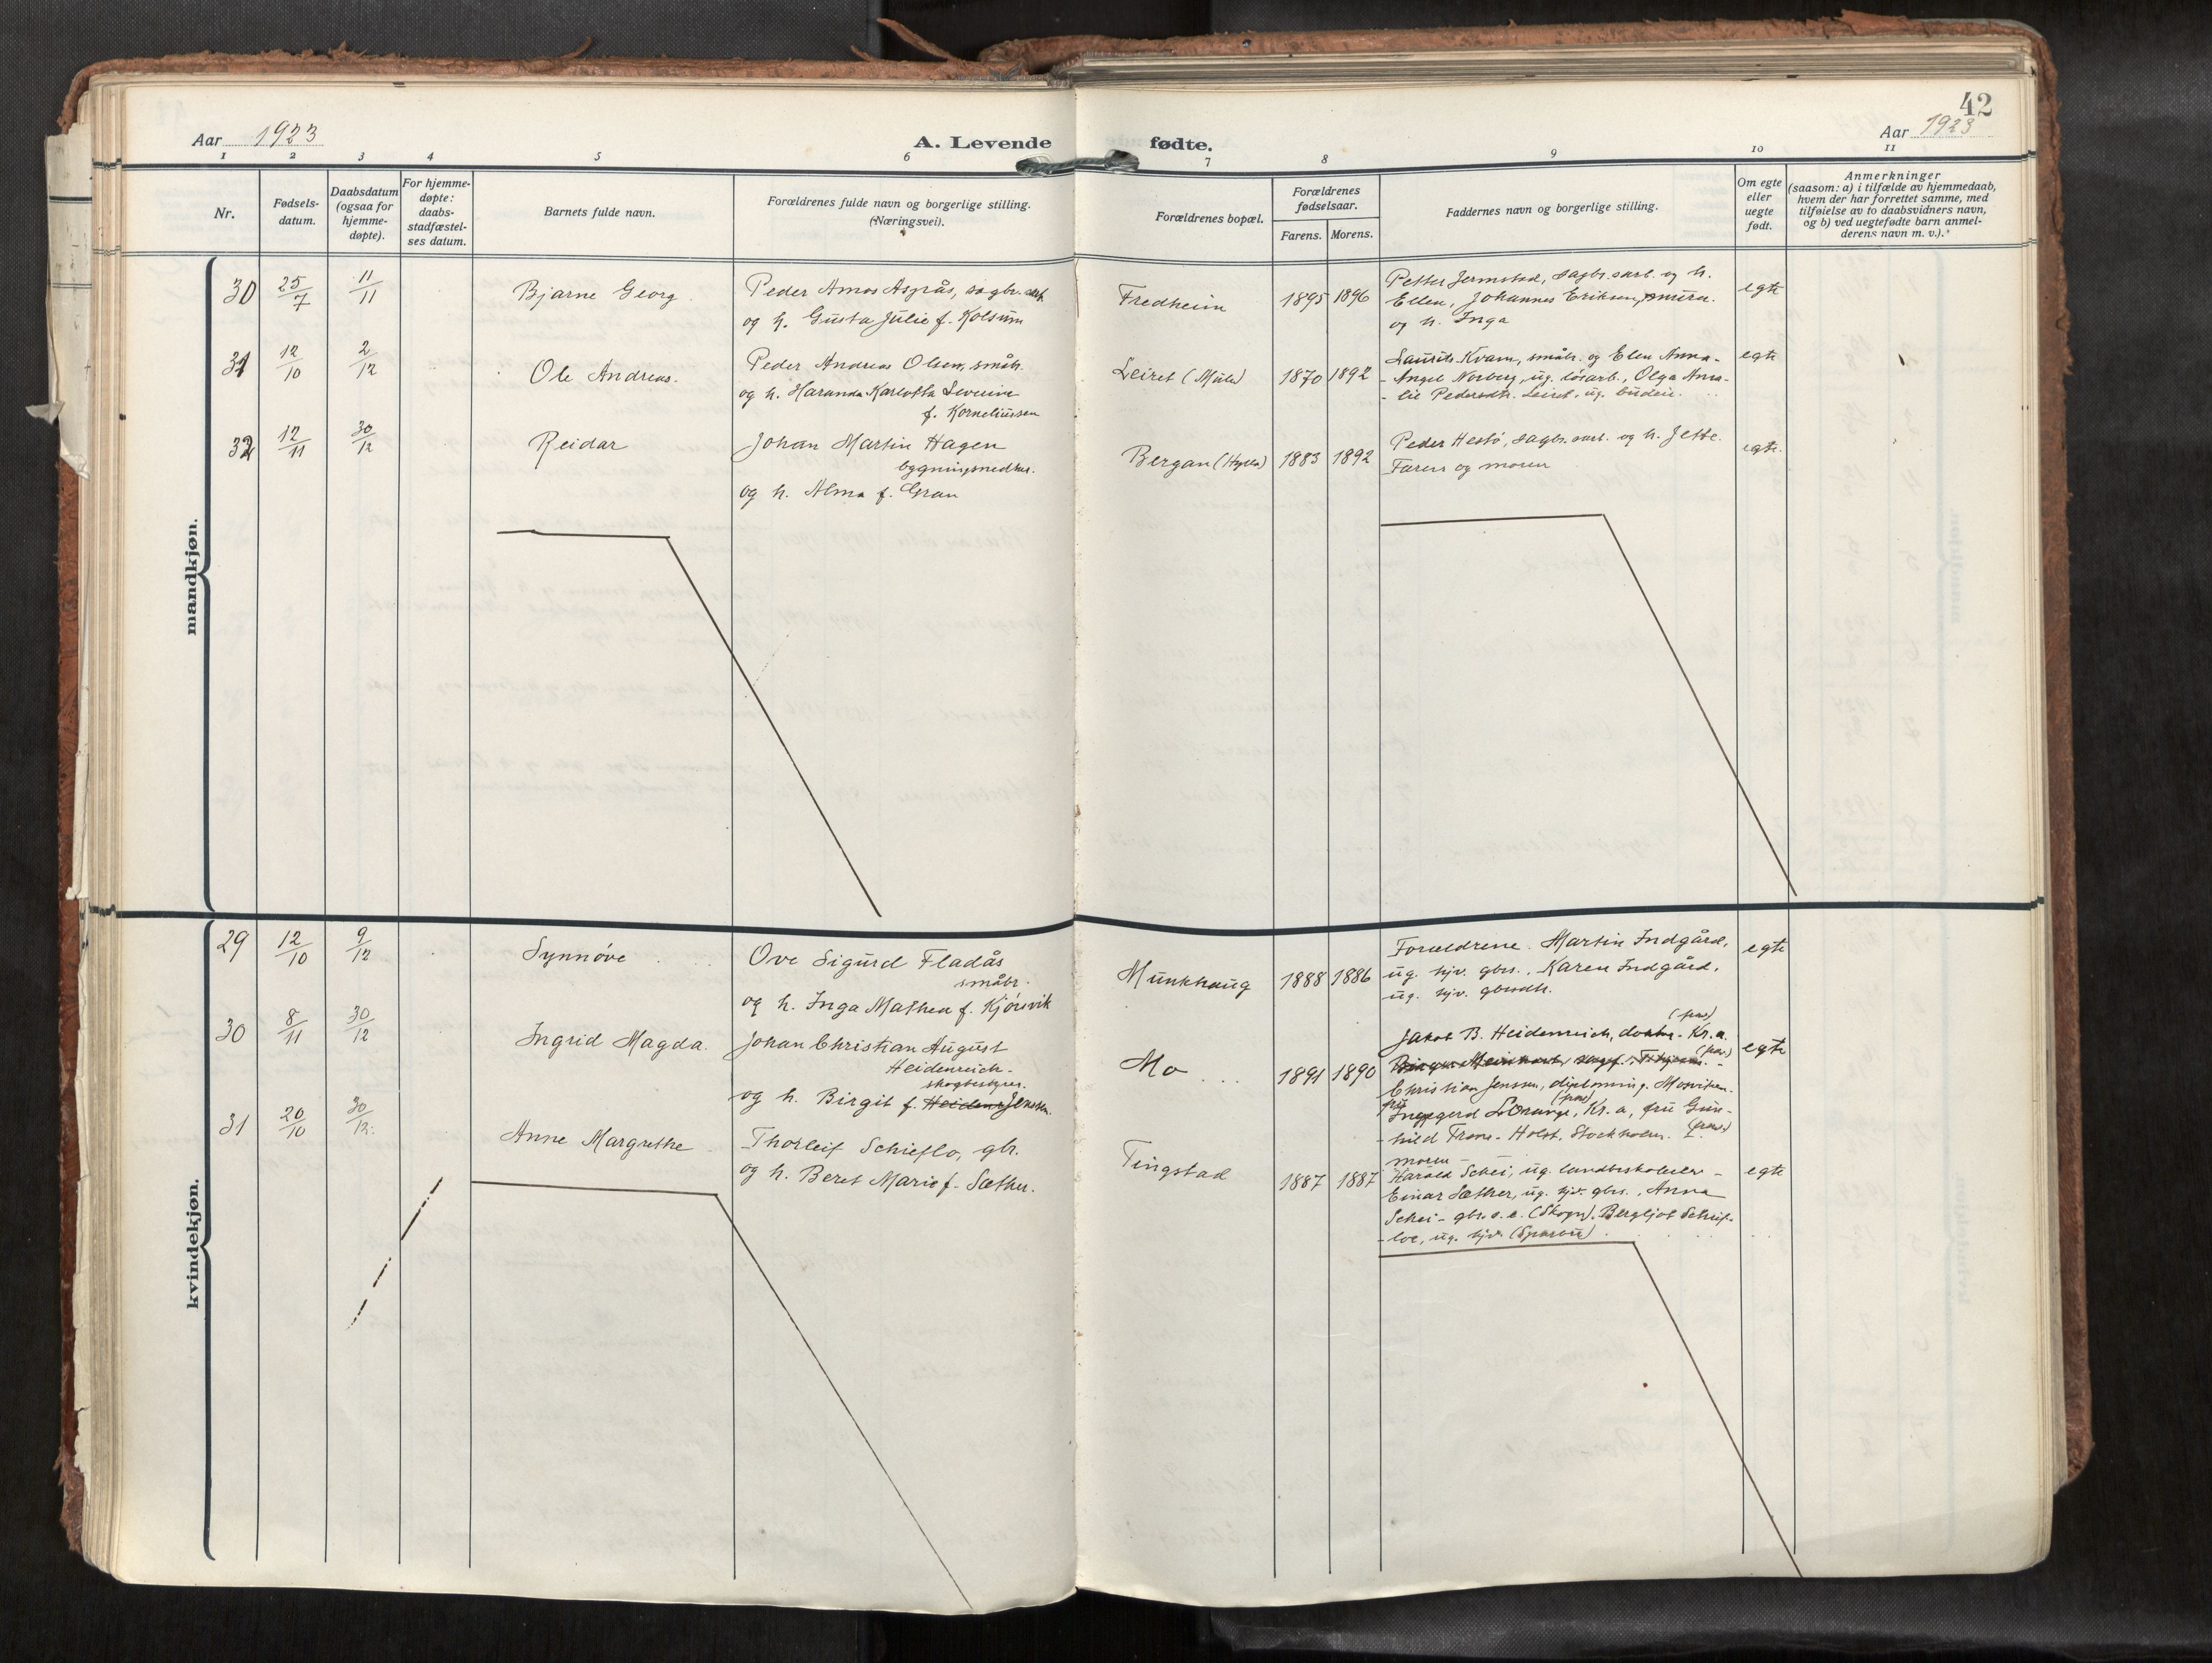 42
Aar 1923
A. Levende fødte.
Aar 1923
1 2 3 4 5 6 7 8 9 10 11
Nr.
Fødsels-
datum.
Daabsdatum
(ogsaa for
hjemme-
døpte).
For hjemme-
døpte:
daabs-
stadfæstel-
ses datum.
Barnets fulde navn.
Forældrenes fulde navn og borgerlige stilling.
(Næringsvei).
Forældrenes bopæl.
Forældrenes
fødselsaar.
Farens. Morens.
Faddernes navn og borgerlige stilling.
Om egte
eller
uegte
født.
Anmerkninger
(saasom: a) i tilfælde av hjemmedaab,
hvem der har forrettet samme, med
tilføielse av to daabsvidners navn,
og b) ved uegtefødte barn anmel-
derens navn m. v.).*
mandkjøn.
30 25/7 11/11
Bjarne Georg.
Peder Amos Aspås, sagbr. arb.
og h. Gusta Julie f. Kolsum
Fredheim
1895 1896
Petter Jermstad, sagbr. arb. og h.
Ellen, Johannes Eriksen, murer.
og h. Inga
egte
31 12/10 2/12
Ole Andreas.
Peder Andreas Olsen, småbr.
og h. Haranda Karlotta Severine
f. Korneliussen
Leiret (Mule)
1870 1892
Laurits Kvam, småbr. og Elen Anna-
- Angel Norberg, ug. løsarb., Olga Ama-
- lie Pedersdtr. Leiret, ug. budeie.
egte
32 12/11 30/12
Reidar
Johan Martin Hagen
bygningssnedker.
og h. Alma f. Gran
Bergan (Hylla)
1883 1892
Peder Hestø, sagbr. arb. og h. Jette.
Faren og moren
egte.
kvindekjøn.
29 12/10 9/12
Synnøve
Ove Sigurd Fladås
småbr.
og h. Inga Mathea f. Kjørsvik
Munkhaug
1888 1886
Forældrene. Martin Indgård,
ug. hjv. gbrs., Karen Indgård,
ug. hjv. gbrsdtr.
egte
30 8/11 30/12
Ingrid Magda.
Johan Christian August
Heidenreich-
skogbestyrer.
og h. Birgit f. Jenssen.
Mo
1891 1890
(frav.)
Jakob B. Heidenreich, Kr.a.
(frav.)
Christian Jenssen, diplomining. Mosviken.
(frav.)
fru Ingegerd L'Orange, Kr.a, fru Gun-
- hild Trane- Holst. Stockholm. (frav.)
moren -
egte
31 20/10 30/12.
Anne Margrethe
Thorleif Schieflo, gbr.
og h. Beret Marie f. Sæther.
Tingstad
1887 1887
Harald Schei, ug. landbrskoleelev -
Einar Sæther, ug. hjv. gbrs., Anna
Schei - gbr. s. e. (Skogn). Bergljot Schief-
- loe, ug. hjv. (Sparbu)
egte